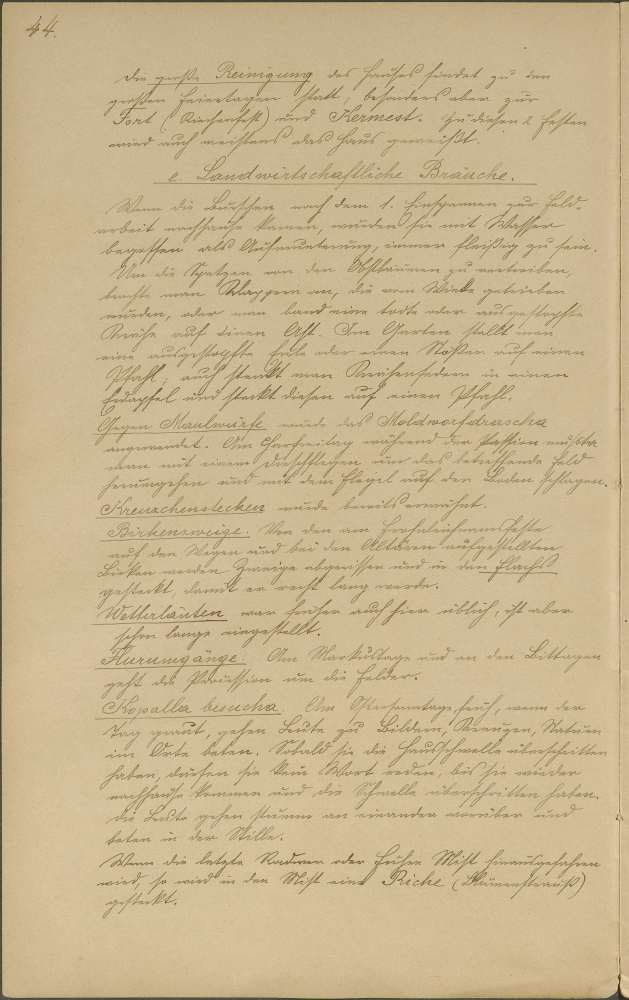 44.
Die große Reinigung des Hauses findet zu den
großen Feiertagen statt, besonders aber zur
Fort (Kirchenfest) und Kermest. Zu diesen 2 Festen
wird auch meistens das Haus geweißt.
e Landwirtschaftliche Bräuche.
Wenn die Burschen nach dem 1. Einspannen zur Feld-
arbeit nachhause kamen, wurden sie mit Wasser
begossen als Aufmunterung, immer fleißig zu sein.
Um die Spatzen von den Obstbäumen zu vertreiben,
brachte man Klappern an, die vom Winde getrieben
wurden, oder man band eine todte oder ausgestopfte
Krähe auf einen Ast. Im Garten stellt man
eine ausgestopfte Eule oder einen Stößer auf einen
Pfahl; auch steckt man Krähenfedern in einen
Erdapfel und steckt diesen auf einen Pfahl.
Gegen Maulwürfe wurde das Moldworfdrascha
angewendet. Am Charfreitag während der Passion mußte
man mit einem Dreschflegel um das betreffende Feld
herumgehen und mit dem Flegel auf den Boden schlagen.
Kreuzchenstecken wurde bereits erwähnt.
Birkenzweige. Von den am Frohnleichnamsfeste
auf den Wegen und bei den Altären aufgestellten
Birken werden Zweige abgerissen und in den Flachs
gesteckt, damit er recht lang werde.
Wetterläuten war früher auch hier üblich, ist aber
schon lange eingestellt.
Flurumgänge. Am Markustage und an den Bittagen
geht die Procession um die Felder.
Kopalla besucha. Am Ostersonntage, früh, wenn der
Tag graut, gehen Leute zu Bildern, Kreuzen, Statuen
im Orte beten. Sobald sie die Hausschwelle überschritten
haben, dürfen sie kein Wort reden, bis sie wieder
nachhause kommen und die Schwelle überschritten haben.
Die Leute gehen stumm an einander vorüber und
beten in der Stille.
Wenn die letzte oder Fuhre Mist hinausgefahren
wird, so wird in den Mist eine Riche (Blumenstrauß)
gesteckt.